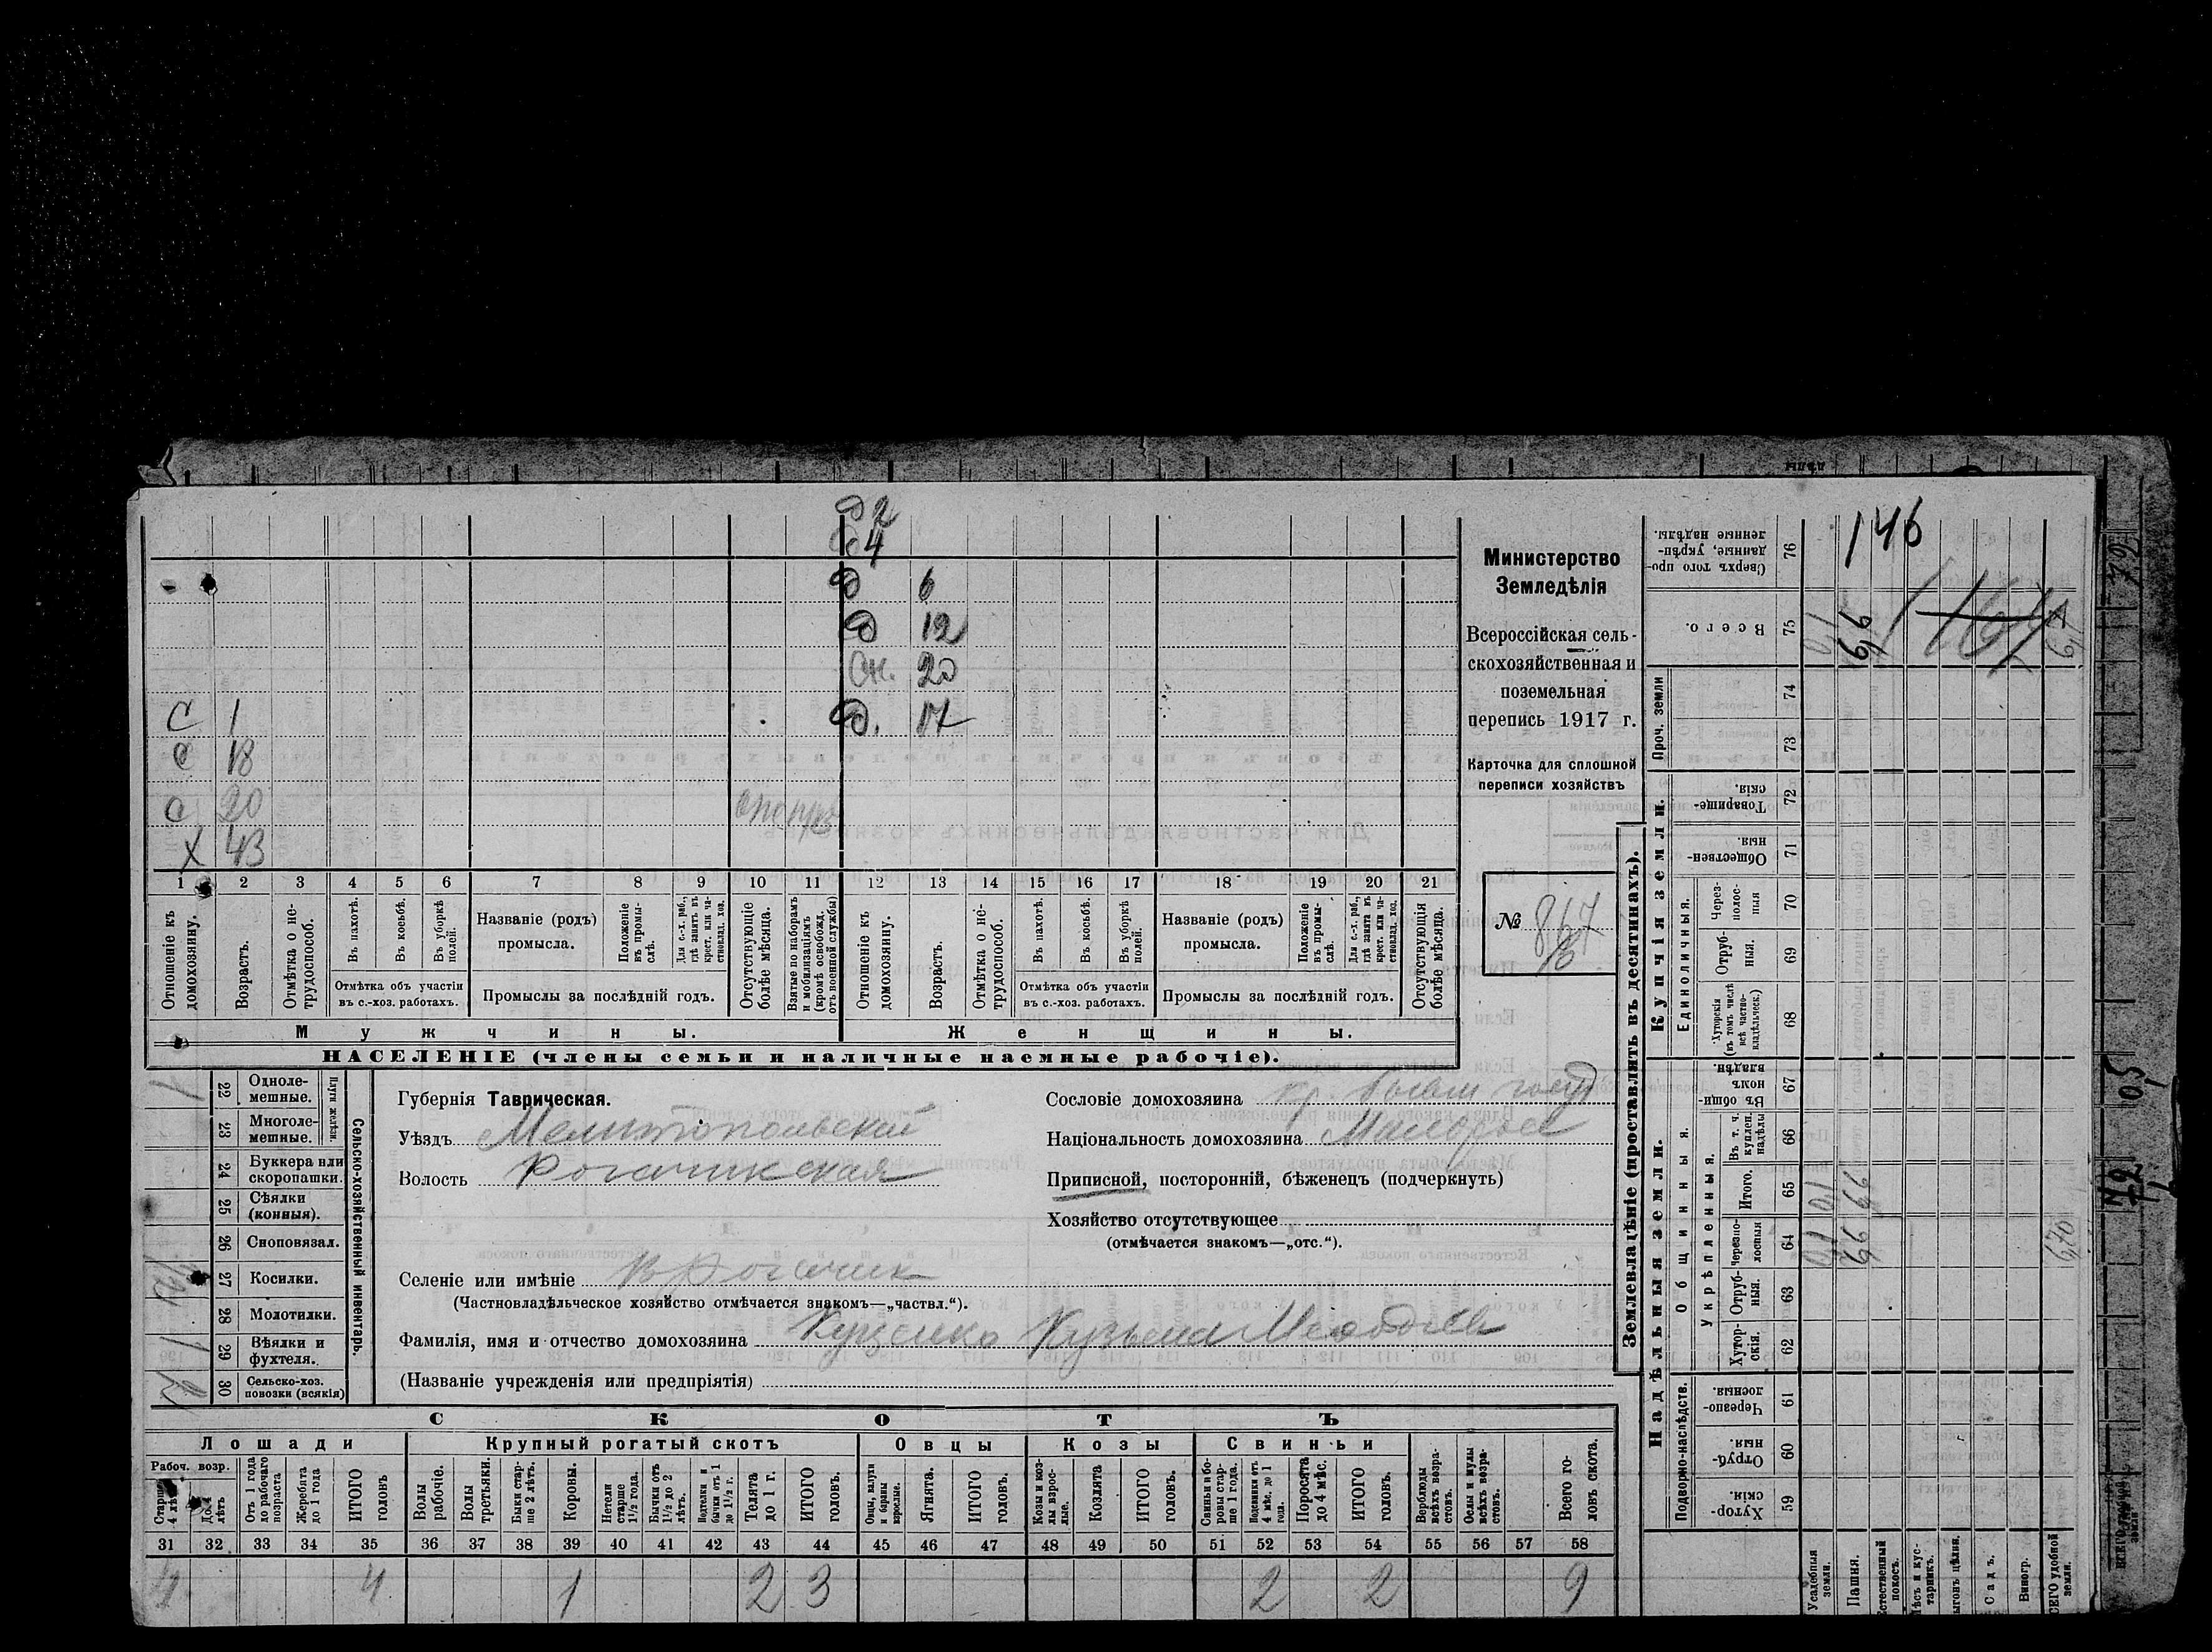 Д 2
4
Д 6
Д 12
Сн. 20
С 1 Д. 17
С 18
С 20
Х 43
1 2 3 4 5 6 7 8 9 10 11 12 13 14 15 16 17 18 19 20 21
Отношеніе къ домохозяину.
Возрастъ.
Отмѣтка о нетрудоспособ.
Въ пахотѣ.
Въ косьбѣ.
Въ уборкѣ полей.
Отмѣтка объ участіи въ с.-хоз. работахъ.
Названіе (родъ) промысла.
Положеніе въ промыслѣ.
Для с.-х. раб., гдѣ занятъ въ крест. или частновлад. хоз.
Промыслы за послѣдній годъ.
Отсутствующіе болѣе мѣсяца.
Взятые по наборамъ и мобилизаціямъ (кромѣ освобожд. отъ военной службы)
Отношеніе къ домохозяину.
Возрастъ.
Отмѣтка о нетрудоспособ.
Въ пахотѣ.
Въ косьбѣ.
Въ уборкѣ полей.
Отмѣтка объ участіи въ с.-хоз. работахъ.
Названіе (родъ) промысла.
Положеніе въ промыслѣ.
Для с.-х. раб., гдѣ занятъ въ крест. или частновлад. хоз.
Промыслы за послѣдній годъ.
Отсутствующія болѣе мѣсяца.
Мужчины. Женщины.
НАСЕЛЕНІЕ (члены семьи и наличные наемные рабочіе).
Министерство
Земледѣлія
Всероссійская сель-
скохозяйственная и
поземельная
перепись 1917 г.
Карточка для сплошной
переписи хозяйствъ
№ 867
16
Сельско-хозяйственный инвентарь.
Плуги желѣзн.
22 Одноле-мешные. 1
23 Многоле-мешные.
24 Буккера или скоропашки.
25 Сѣялки (конныя).
26 Сноповязал.
27 Косилки.
28 Молотилки.
29 Вѣялки и фухтеля. 1
30 Сельско-хоз. повозки (всякія) 2
Губернія Таврическая.
Уѣздъ Мелитопольский
Волость Рогачикская
Селеніе или имѣніе В Рогачик
(Частновладѣльческое хозяйство отмѣчается знакомъ—„частвл.“).
Фамилія, имя и отчество домохозяина Куценко Кузьма Меѳодіев
(Названіе учрежденія или предпріятія)
Сословіе домохозяина кр. бывш госуд
Національность домохозяина Малоросс
Приписной, посторонній, бѣженецъ (подчеркнуть)
Хозяйство отсутствующее
(отмѣчается знакомъ—„отс.“).
СКОТЪ
Лошади Крупный рогатый скотъ Овцы Козы Свиньи
Рабоч. возр.
Старше 4 лѣтъ
До 4 лѣтъ
Отъ 1 года до рабочаго возраста
Жеребята до 1 года
ИТОГО головъ
Волы рабочіе.
Волы третьяки.
Быки старше 2 лѣтъ.
Коровы.
Нетели старше 1 1/2 года.
Бычки отъ 1 1/2 до 2 лѣтъ.
Подтелки и бычки отъ 1 до 1 1/2 г.
Телята до 1 г.
ИТОГО головъ.
Овцы, валухи и бараны взрослые.
Ягнята.
ИТОГО головъ.
Козы и козлы взрослые.
Козлята
ИТОГО головъ.
Свиньи и боровы старше 1 года.
Подсвинки отъ 4 мѣс. до 1 года.
Поросята до 4 мѣс.
ИТОГО головъ.
Верблюды всѣхъ возрастовъ.
Ослы и мулы всѣхъ возрастовъ.
Всего головъ скота.
31 32 33 34 35 36 37 38 39 40 41 42 43 44 45 46 47 48 49 50 51 52 53 54 55 56 57 58
4 4 1 2 3 2 2 9
Землевладѣніе (проставлять въ десятинахъ).
Сверхъ того проданные, укрѣпленные надѣлы. 76
146
Всего. 75
Проч. земли 74 73
Купчія земли.
Товарищескія. 72
Общественныя. 71
Единоличныя.
Черезполосныя 70
Отрубныя. 69
Хуторскія (въ томъ числѣ всѣ частновладѣльческ.) 68
Надѣльныя земли.
Общинныя.
Въ общинномъ владѣн. 67
Укрѣпленныя.
Въ т. ч. куплен. надѣлы 66
Итого. 65
Черезполосныя 64
Отрубныя. 63
Хуторскія. 62
Подворно-наслѣдств.
Черезполосныя. 61
Отрубныя. 60
Хуторскія. 59
Усадебныя земли.
Пашня.
Естественный покосъ.
Садъ.
Виногр.